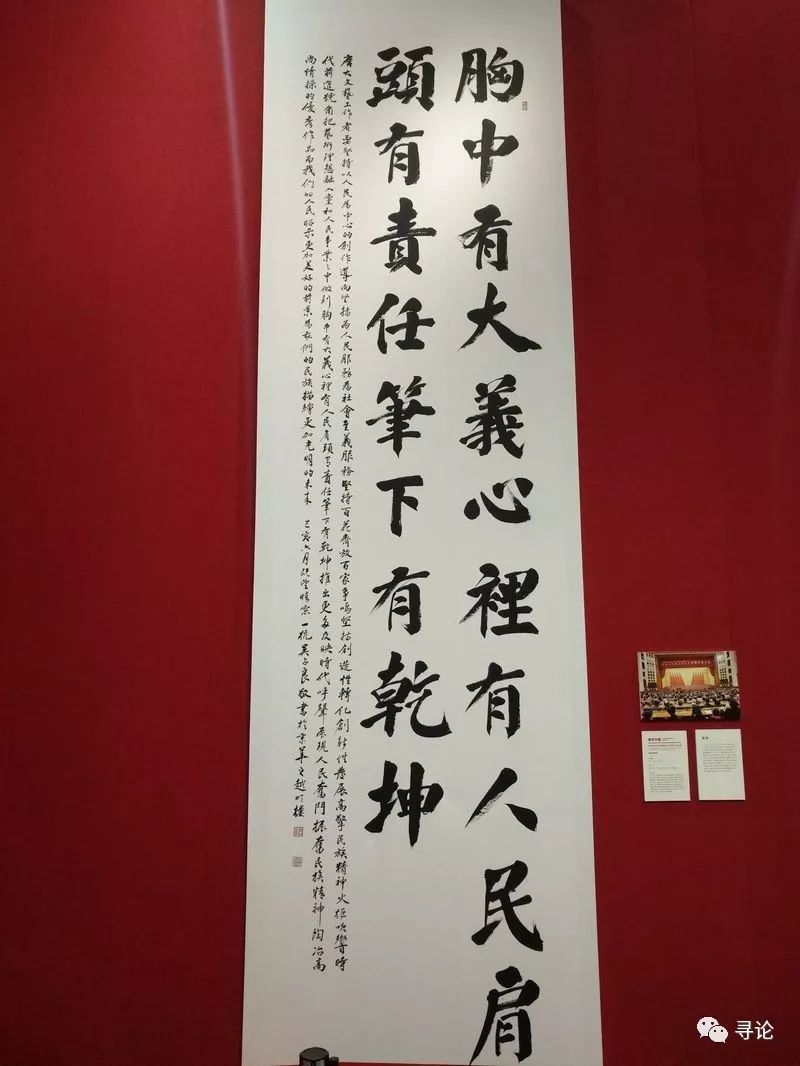 胸中有大義心裡有人民肩
頭有責任筆下有乾坤
廣大文藝工作者要堅持以人民為中心的創作導向堅持為人民服務為社會主義服務堅持百花齊放百家爭鳴堅持創造性轉化創新性發展高擎民族精神火炬吹響時
代前進號角把藝術理想融入黨和人民事業之中做到胸中有大義心裡有人民肩頭有責任筆下有乾坤推出更多反映時代呼聲展現人民奮鬥振奮民族精神陶冶高
尚情操的優秀作品為我們的人民昭示更加美好的前景為我們的民族描繪更加光明的未來 己亥六月 一杭吳占良敬書於京華
寻论